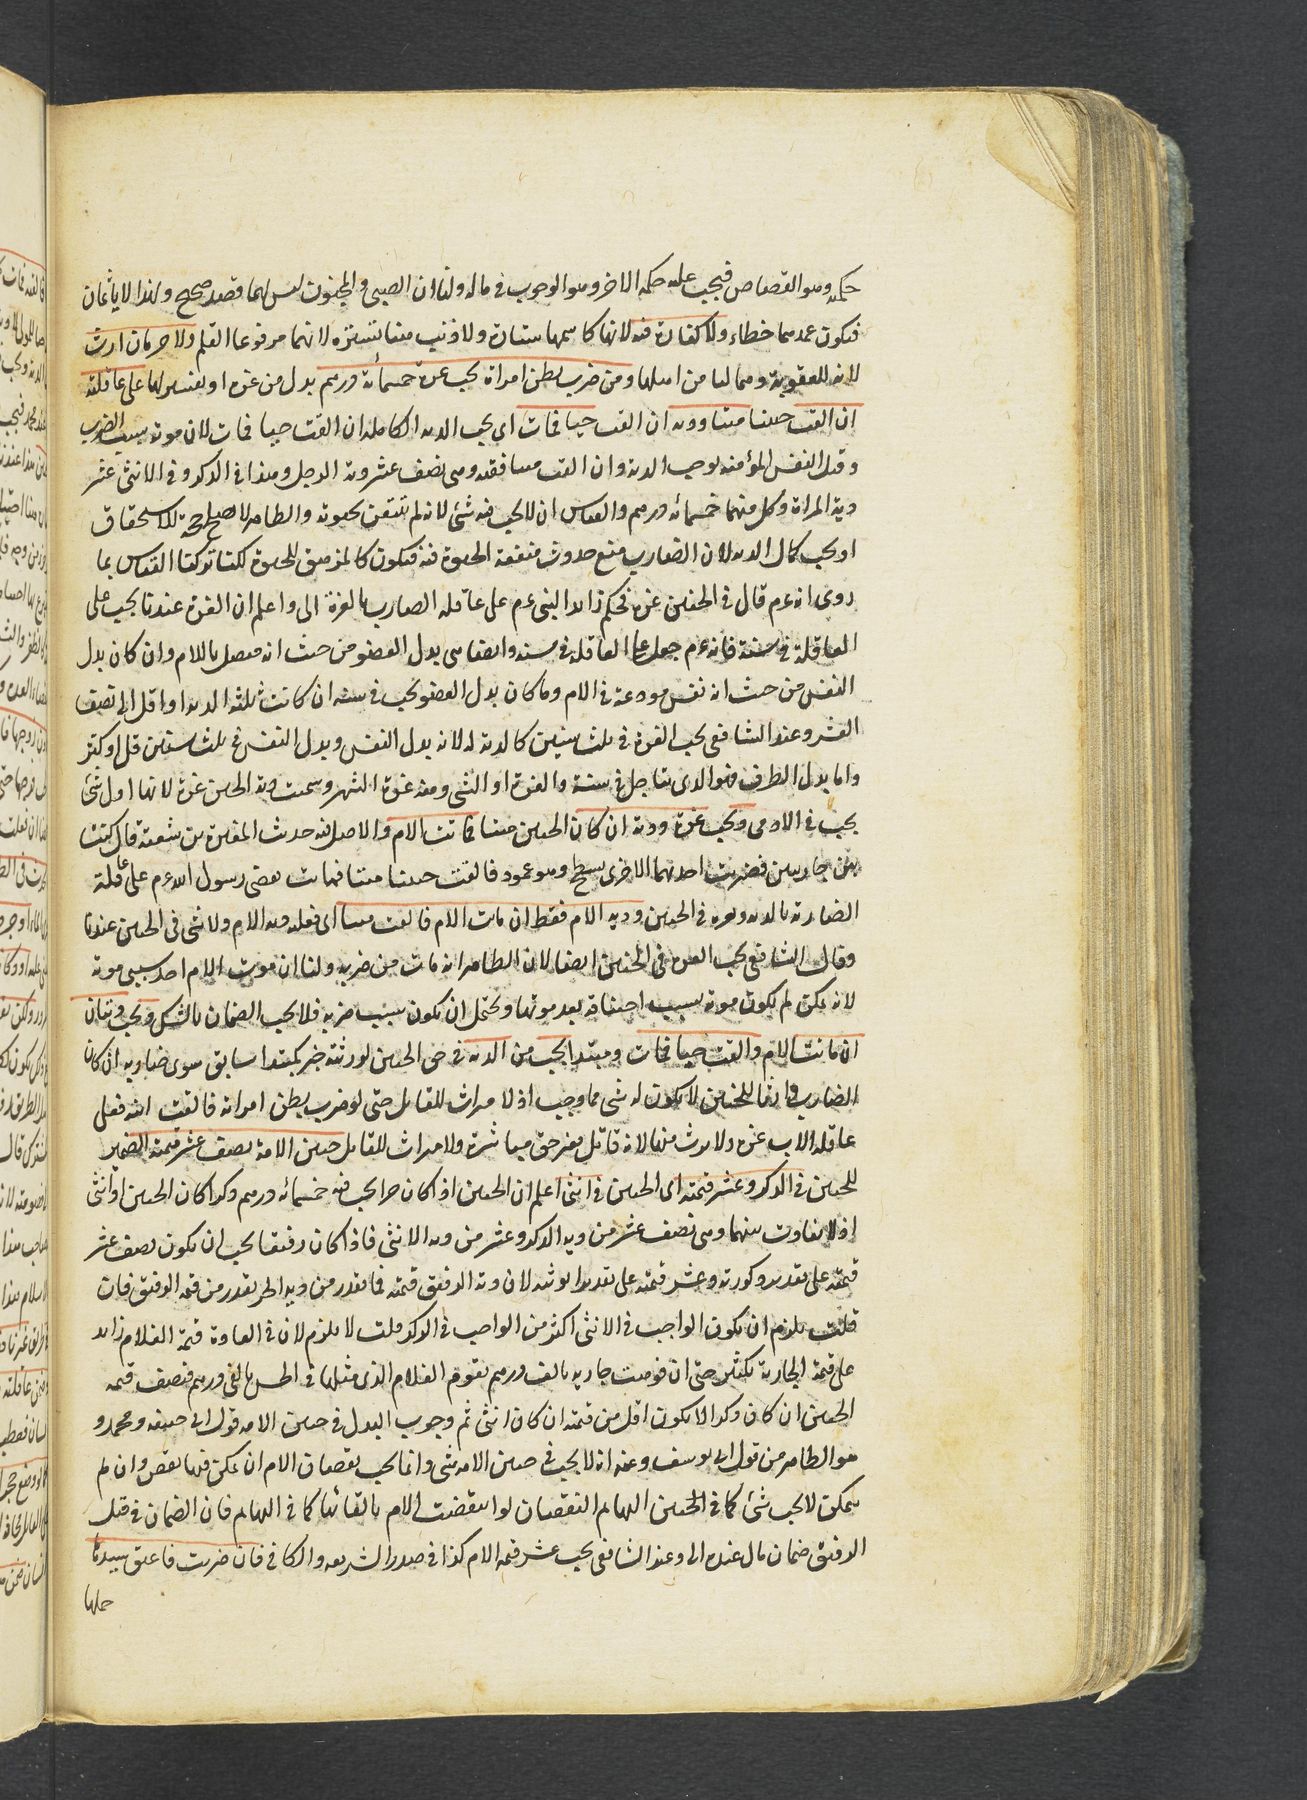 حكمه وهو القصاص فيجب عليه حكمه الاخر وهو الوجوب في ماله ولنا ان الصبي والمجنون ليس لهما قصد صحيح ولهذا لا ياثمان
فيكون عمدهما خطاء ولا كفارة فيه لانها كاسمها ستارة ولا ذنب هنا تستره لانهما مرفوعا القلم ولا حرمان ارث
لانه للعقوبة وهما ليسا من اهلها ومن ضرب بطن امراة يجب غرة خمسمائة درهم بدل من غرة او تفسير لها على عاقلته
ان القت جنينا ميتا ودية ان القت حيا فمات اي يجب الدية الكاملة ان القت حيا فمات لان موته بسبب الضرب
وقتل النفس المؤمنة يوجب الدية وان القت ميتا فغرة وهي نصف عشر دية الرجل وهذا في الذكر وفي الانثى عشر
دية المراة وكل منهما خمسمائة درهم والقياس ان لا يجب فيه شئ لانه لم يتيقن بحيوته والظاهر لا يصلح حجة للاستحقاق
او يجب كمال الدية لان الضارب منع حدوث منفعة الحيوة فيه فيكون كالمزهق للحيوة لكنا تركنا القياس بما
روى انه عم قال في الجنين غرة فحكم النبي عم على عاقلة الضارب بالغرة الى واعلم ان الغرة عندنا يجب على
العاقلة في سنة فانه عم جعل على العاقلة في سنة وايضا هي بدل العضو من حيث انه متصل بالام وان كان بدل
النفس من حيث انه نفس مودعة في الام وما كان بدل العضو يجب في سنة ان كانت ثلث الدية او اقل الى نصف
العشر وعند الشافعي يجب الغرة في ثلث سنين كالدية له لانه بدل النفس وبدل النفس في ثلث سنين قل او كثر
واما بدل الطرف فهو الذي يتاجل في سنة والغرة اول الشئ ومنه غرة الشهر وسميت دية الجنين غرة لانها اول شئ
يجب في الادمي ويجب غرة ودية ان كان الجنين ميتا فماتت الام والاصل فيه حديث المغيرة بن شعبة قال كنت
بين جاريتين فضربت احدهما الاخرى بمسطح وهو عمود فالقت جنينا ميتا فماتت فقضى رسول الله عم على عاقلة
الضاربة بالدية وبغرة في الجنين ودية الام فقط ان ماتت الام فالقت ميتا اى فعليه دية الام ولا شئ في الجنين عندنا
وقال الشافعي يجب الغرة في الجنين ايضا لان الظاهر انه مات من ضربه ولنا ان موت الام احد سببي موته
لانه يمكن لم يكون موته بسبب اختناقه بعد موتها ويحتمل ان يكون بسبب ضربه فلا يجب الضمان بالشك ويجب ديتان
ان ماتت الام والقت حيا فمات ومبتدا يجب من الدية في حق الجنين لورثته خبر لمبتدا سابق سوى ضاربه ان كان
الضارب وارثا للجنين لا يكون له شئ مما وجب اذ لا ميراث للقاتل حتى لو ضرب بطن امراته فالقت ابنه فعلى
عاقلة الاب غرة ولا يرث منها لانه قاتل بغير حق مباشرة ولا ميراث للقاتل جنين الامة نصف عشر قيمته الضمير
للجنين في الذكر وعشر قيمته اى الجنين في انثى اعلم ان الجنين اذا كان حرا يجب فيه خمسمائة درهم ذكرا كان الجنين او انثى
اذ لا تفاوت بينهما وهي نصف عشر من دية الذكر وعشر من دية الانثى فاذا كان رقيقا يجب ان يكون نصف عشر
قيمته على تقدير ذكورته وعشر قيمته على تقدير انوثته لان دية الرقيق قيمته فما يقدر من دية الحر يقدر من قيمة الرقيق فان
قلت يلزم ان يكون الواجب في الانثى اكثر من الواجب في الذكر قلت لا يلزم لان في العادة قيمة الغلام زايد
على قيمة الجارية بكثير حتى ان قومت جارية بالف درهم يقوم الغلام الذي مثلها في الحسن بالفي درهم فنصف قيمة
الجنين ان كان ذكرا لا يكون اقل من قيمته ان كان انثى ثم وجوب البدل في جنين الامة قول ابي حنيفة ومحمد و
هو الظاهر من قول ابي يوسف وعنه انه لا يجب في جنين الامة شئ وانما يجب نقصان الام ان يمكن فيها نقص وان لم
يتمكن لا يجب شئ كما في الجنين البهايم النقصان لو انتقضت الام بالقائها كما في البهايم فان الضمان في قتل
الرقيق ضمان مال عنده الى وعند الشافعي يجب عشر قيمة الام كذا في صدر الشريعة والكافي فان ضربت فاعتق سيدها
حملها